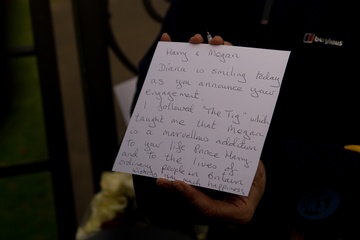 berghaus
Harry & Megan
Diana is smiling today
as you announce your
engagement.
I followed "The Tig" which
taught me that Megan
is a marvellous addition
to your life Prince Harry
and to the lives of
ordinary people in Britain
you much happiness